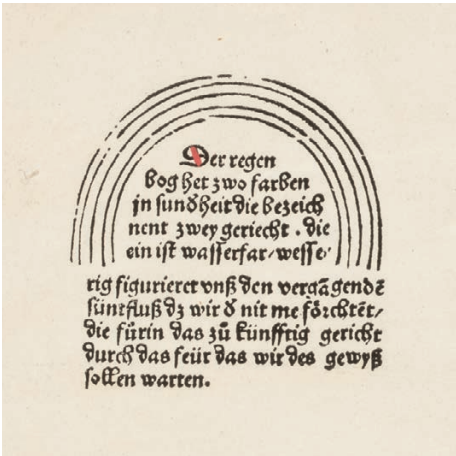 Der regen
bog het zwo farben
jn sunđheit die bezeich
nent zwey geriecht . die
ein ist wasserfar/ wesse/
rig figurieret vnß den vergāgendē
süntfluß dz wir đ nit me förchtēt/
die fürin das zů künfftig gericht
durch das feür das wir des gewyß
sollen warten.